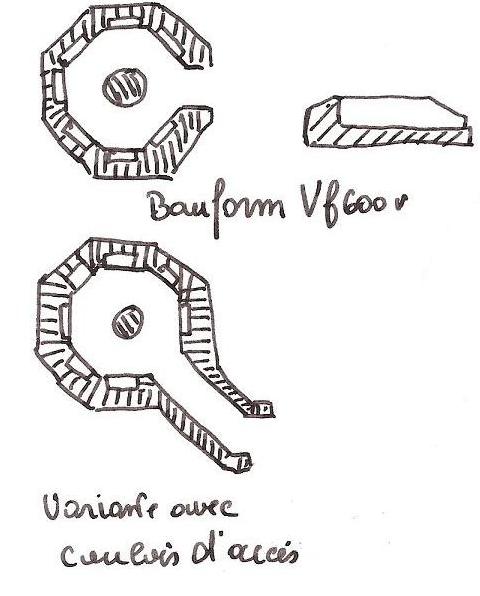 Bauform Vf600v
Variante avec
couloirs d'accès